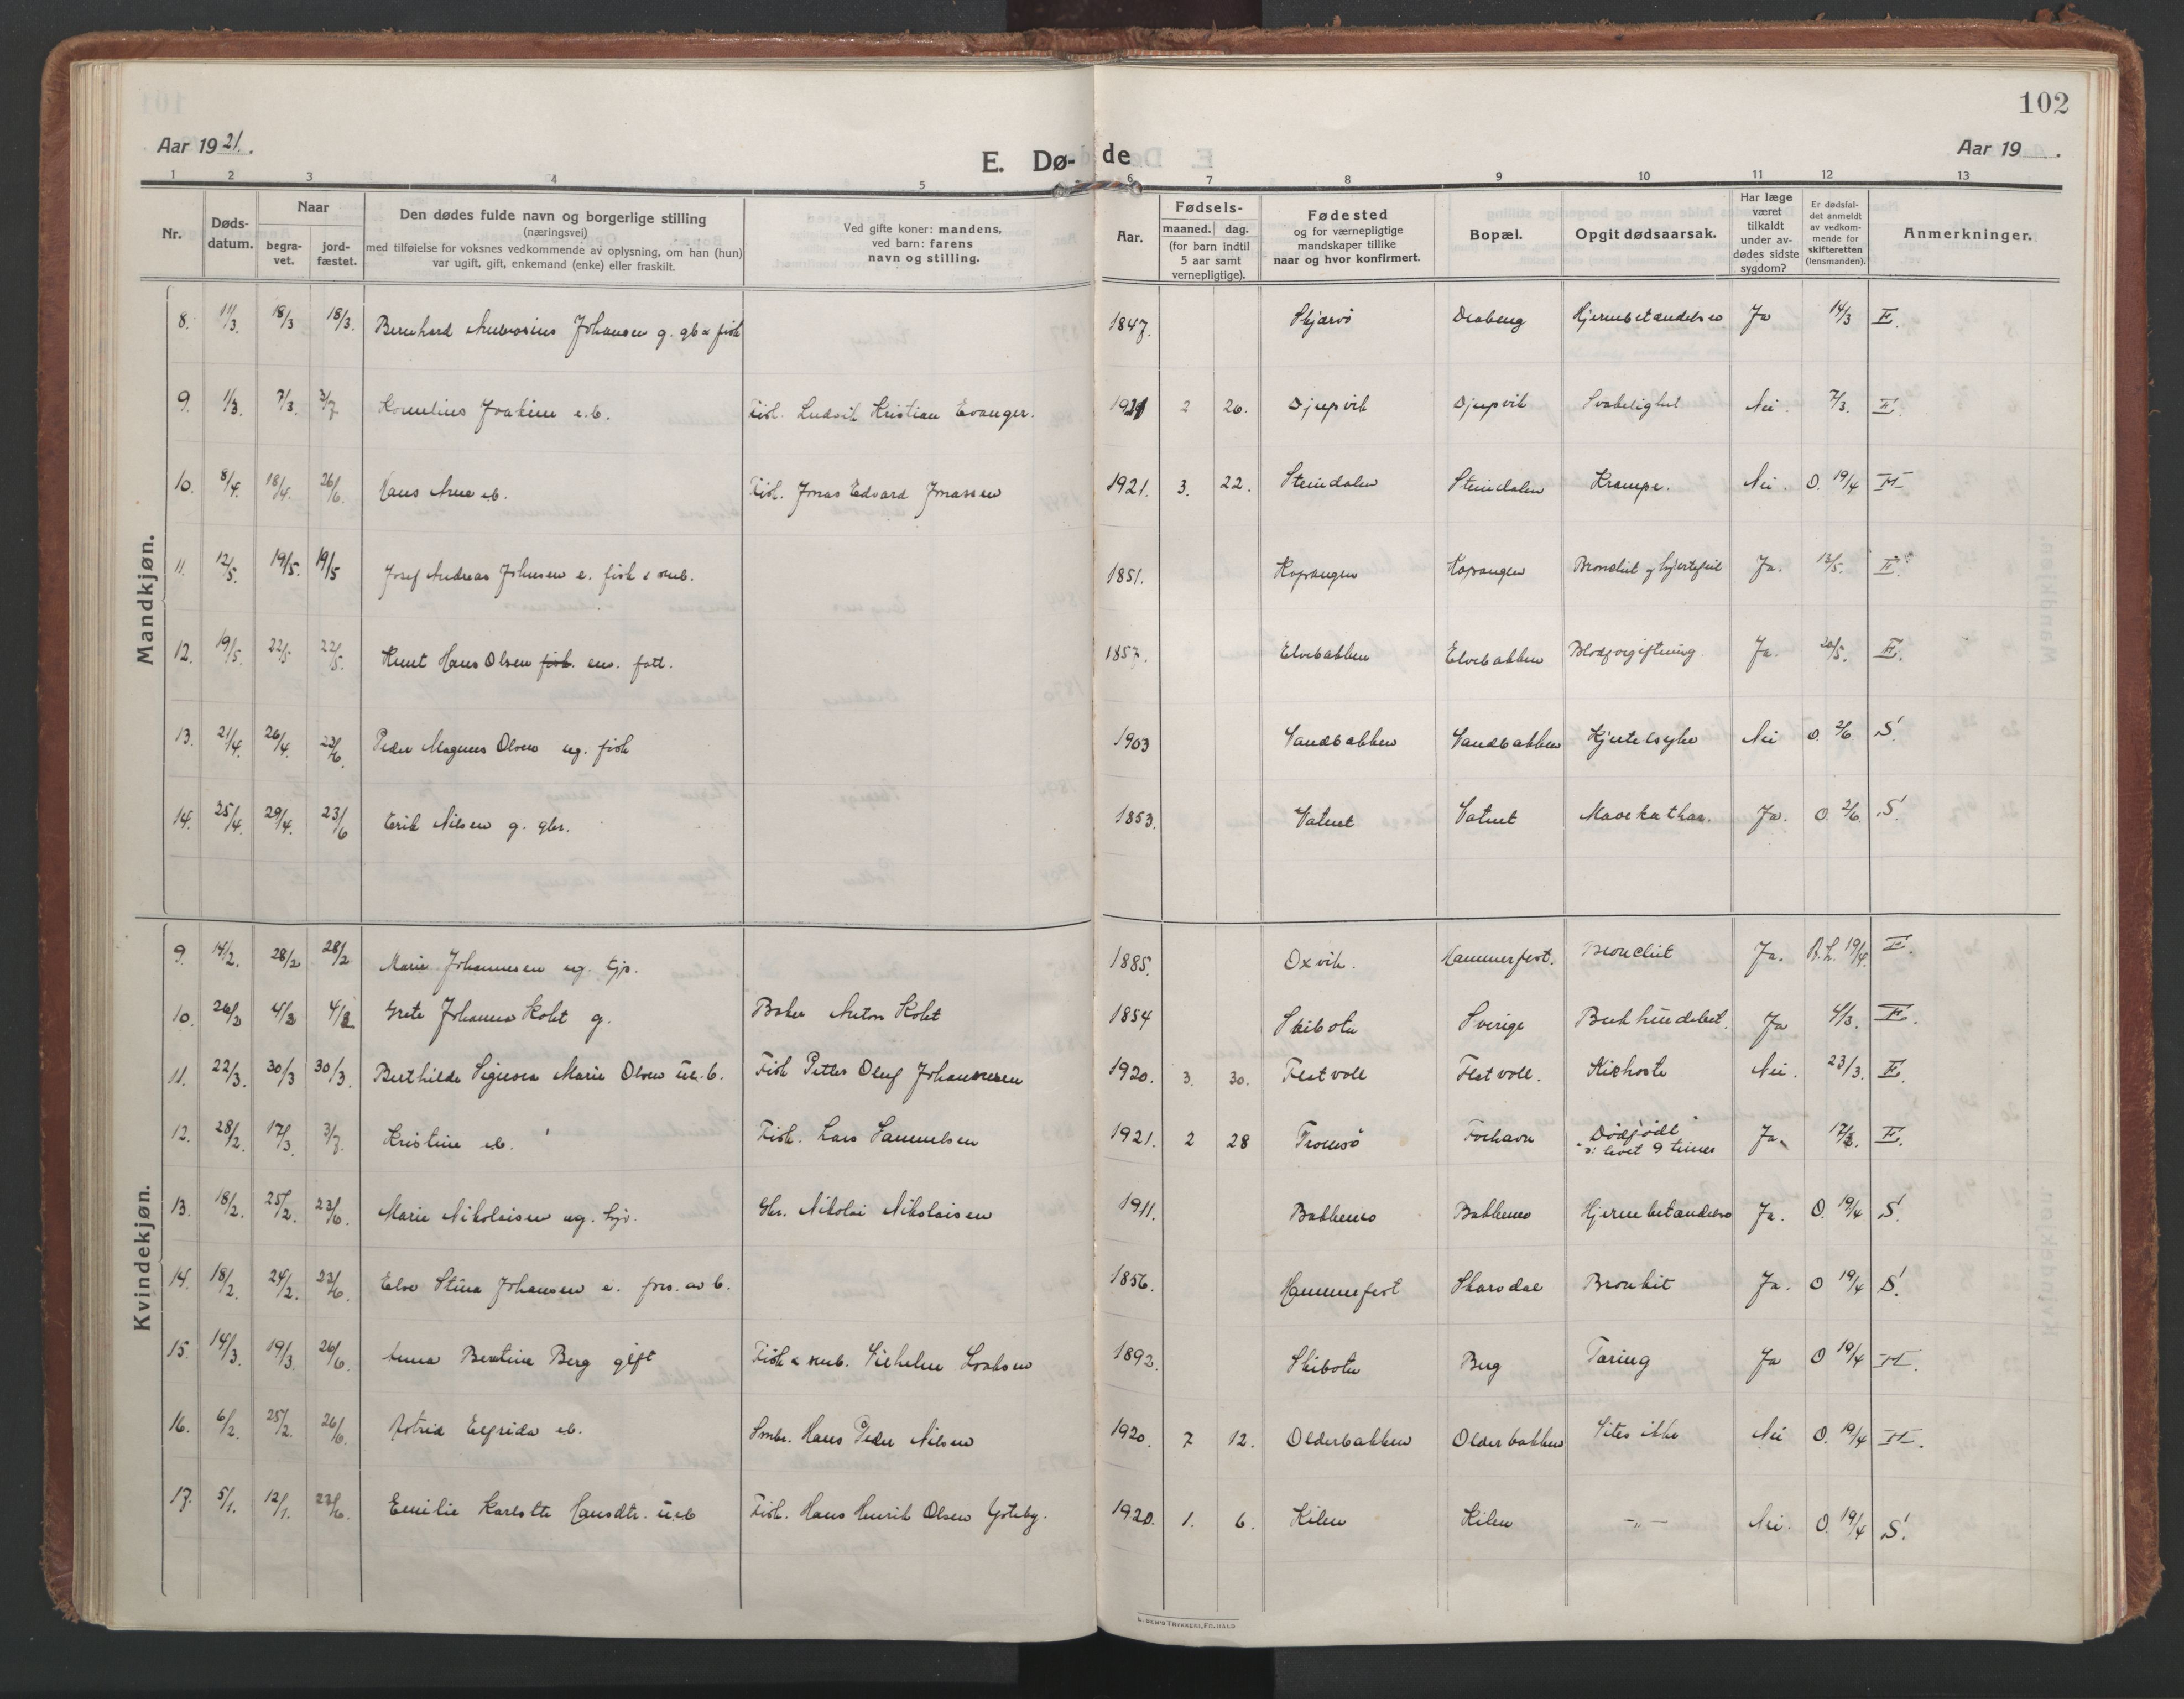 102
Aar 1921.
E. Dø- de
Aar 19 .
1 2 3 4 5 6 7 8 9 10 11 12 13
Nr.
Døds-
datum.
Naar
begra-
vet.
jord-
fæstet.
Den dødes fulde navn og borgerlige stilling
(næringsvei)
med tilføielse for voksnes vedkommende av oplysning, om han (hun)
var ugift, gift, enkemand (enke) eller fraskilt.
Ved gifte koner: mandens,
ved barn: farens
navn og stilling.
Aar.
Fødsels-
maaned. dag.
(for barn indtil
5 aar samt
vernepligtige).
Fødested
og for værnepligtige
mandskaper tillike
naar og hvor konfirmert.
Bopæl.
Opgit dødsaarsak.
Har læge
været
tilkaldt
under av-
dødes sidste
sygdom?
Er dødsfal-
det anmeldt
av vedkom-
mende for
skifteretten
(lensmanden).
Anmerkninger.
Mandkjøn.
8. 11/3 18/3 18/3. Bernhard Ambrosius Johansen g. gb & fisk 1847. Skjervö Hjernebetændelse Ja 14/3 F.
9. 1/3 7/3. 3/7 Kornelius Joakim e.b. Fisk. Ludvik Kristian Evanger. 1921 2 26. Djupvik Djupvik Svakelighet Nei. 7/3. F.
10. 8/4. 18/4. 26/6. Hans Arne eb. Fisk. Jonas Edvard Jonassen 1921. 3. 22. Steindalen Steindalen Krampe. Nei. O. 19/4 H
11. 12/5. 19/5. 19/5 Josef Andreas Johnsen e. fisk & smb. 1851. Kopangen Kopangen Bronchit og hjertefeil Ja. 13/5. F.
12. 19/5. 22/5 22/5. Knut Hans Olsen fisk. em. fatt. 1857. Elvebakken Elvebakken Blodforgiftning. Ja. 20/5. F.
13. 21/4. 26/4. 23/6. Peder Magnus Olsen ug. fisk 1903 Sandbakken Sandbakken Hjertelsyke Nei O. 2/6 S.
14. 25/4. 29/4. 23/6 Erik Nilsen g. gbr. 1853. Vatnet Vatnet Mavekathar. Ja. O. 2/6. S.
Kvindekjøn.
9. 14/2. 28/2 28/2 Marie Johannesen ug. tjp. 1885. Oxvik. Hammerfest. Bronchit Ja. B.L. 19/4. F.
10. 26/2 4/3 4/3 Grete Johanna Kolt g. Baker Anton Kolt 1854 Skibotn Sverige Bukhindebet. Ja 4/3. F.
11. 22/3. 30/3 30/3. Berthilde Signora Marie Olsen u.e.b. Fisk Petter Oluf Johannesen 1920. 3. 30. Flatvoll Flatvoll. Kikhoste Nei. 23/3. F.
12. 28/2. 17/3. 3/7. Kristine eb. Fisk. Lars Samuelsen 1921. 2 28 Tromsö "Dödfödt" ɔ: levet 9 timer Ja 17/3. F.
13. 18/2. 25/2. 23/6. Marie Nikolaisen ug. tjp. Gbr. Nikolai Nikolaisen 1911. Bakkemo Bakkemo Hjernebetændelse Ja. O. 19/4 S.
14. 18/2. 24/2. 23/6. Elve Stina Johansen e. fors. av b. 1856. Hammerfest Skarsdal Bronkit Ja. O 19/4 S.
15. 14/3. 19/3. 26/6. Anna Bertine Berg gift Fisk & smb. Vilhelm Isaksen 1892. Skibotn Berg Tæring Ja O 19/4 H.
16. 6/2. 25/2. 26/6. Astrid Elfrida eb. Smbr. Hans Peder Nilsen 1920. 7 12. Olderbakken Olderbakken Vites ikke Nei O. 19/4 H.
17. 5/1. 12/1. 23/6. Emilie Karlotte Hansdtr. u.e.b Fisk. Hans Henrik Olsen 1920. 1. 6. Kilen Kilen -"- Nei. O. 19/4 S.